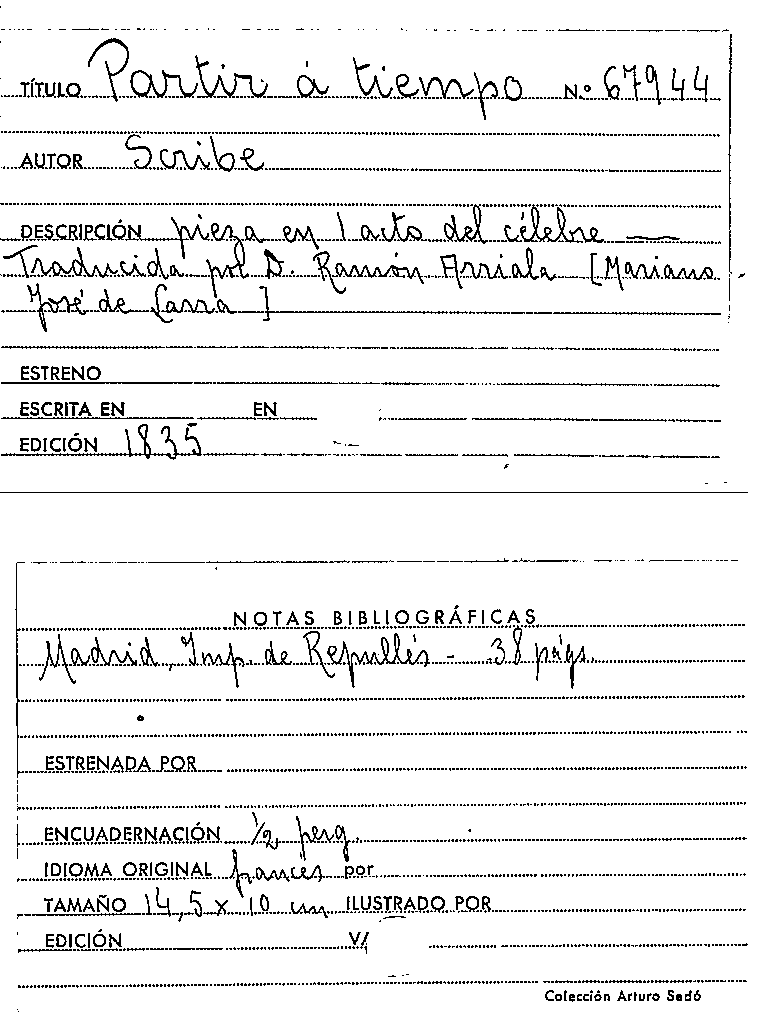 TÍTULO Partir á tiempo N.º 67944
AUTOR Scribe
DESCRIPCIÓN pieza en 1 acto del célebre —
Traducida pol D. Ramón Arriala [Mariano
José de Larra ]
ESTRENO
ESCRITA EN EN
EDICIÓN 1835
NOTAS BIBLIOGRÁFICAS
Madrid, Imp. de Repullés - 38 págs.
ESTRENADA POR
ENCUADERNACIÓN 1/2 perg.
IDIOMA ORIGINAL francés por
TAMAÑO 14,5 x 10 cm ILUSTRADO POR
EDICIÓN V/
Colección Arturo Sedó